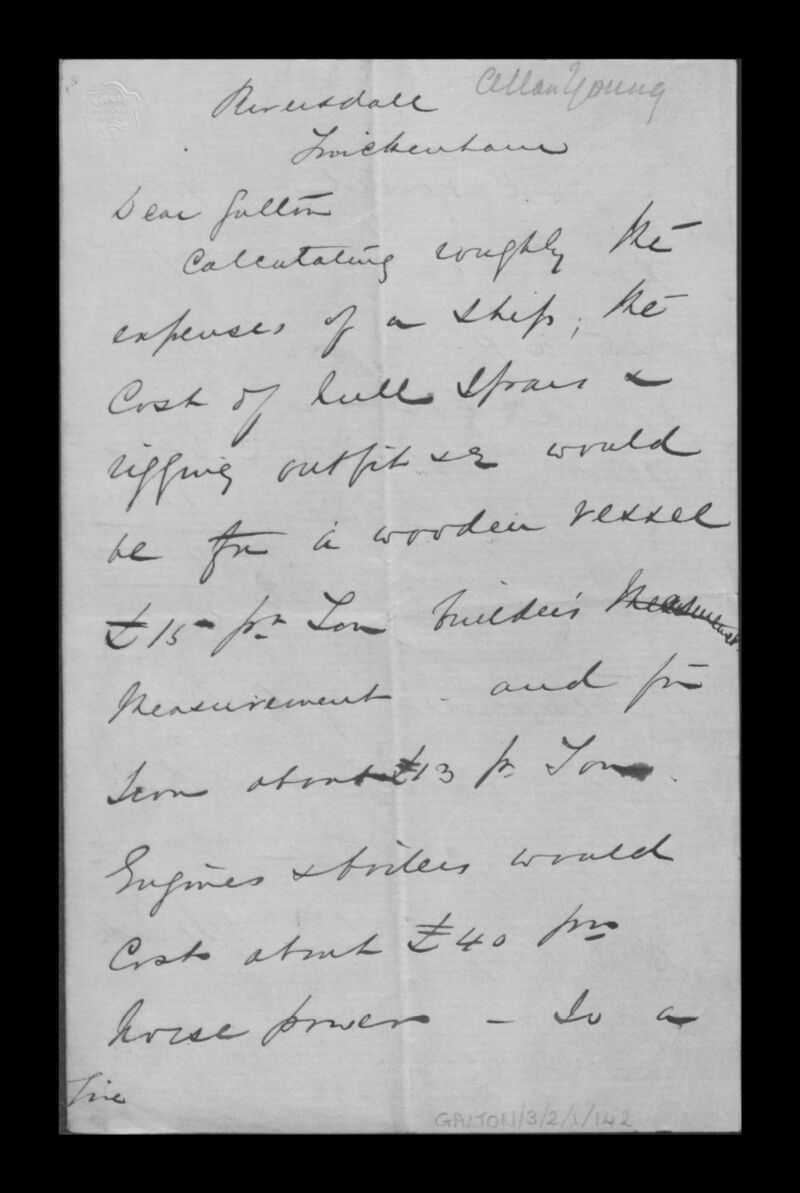 Allan Young
Riversdale
Twickenham
Dear Galton
Calculating roughly the
expenses of a ship, the
Cost of hull spars &
rigging outfit &c would
be for a wooden vessel
£15 pr Ton builders Measurement
Measurement - and for
Iron about £13 pr Ton.
Engines & boilers would
Cost about £40 pr
horse power - So a
GALTON/3/2/1/142